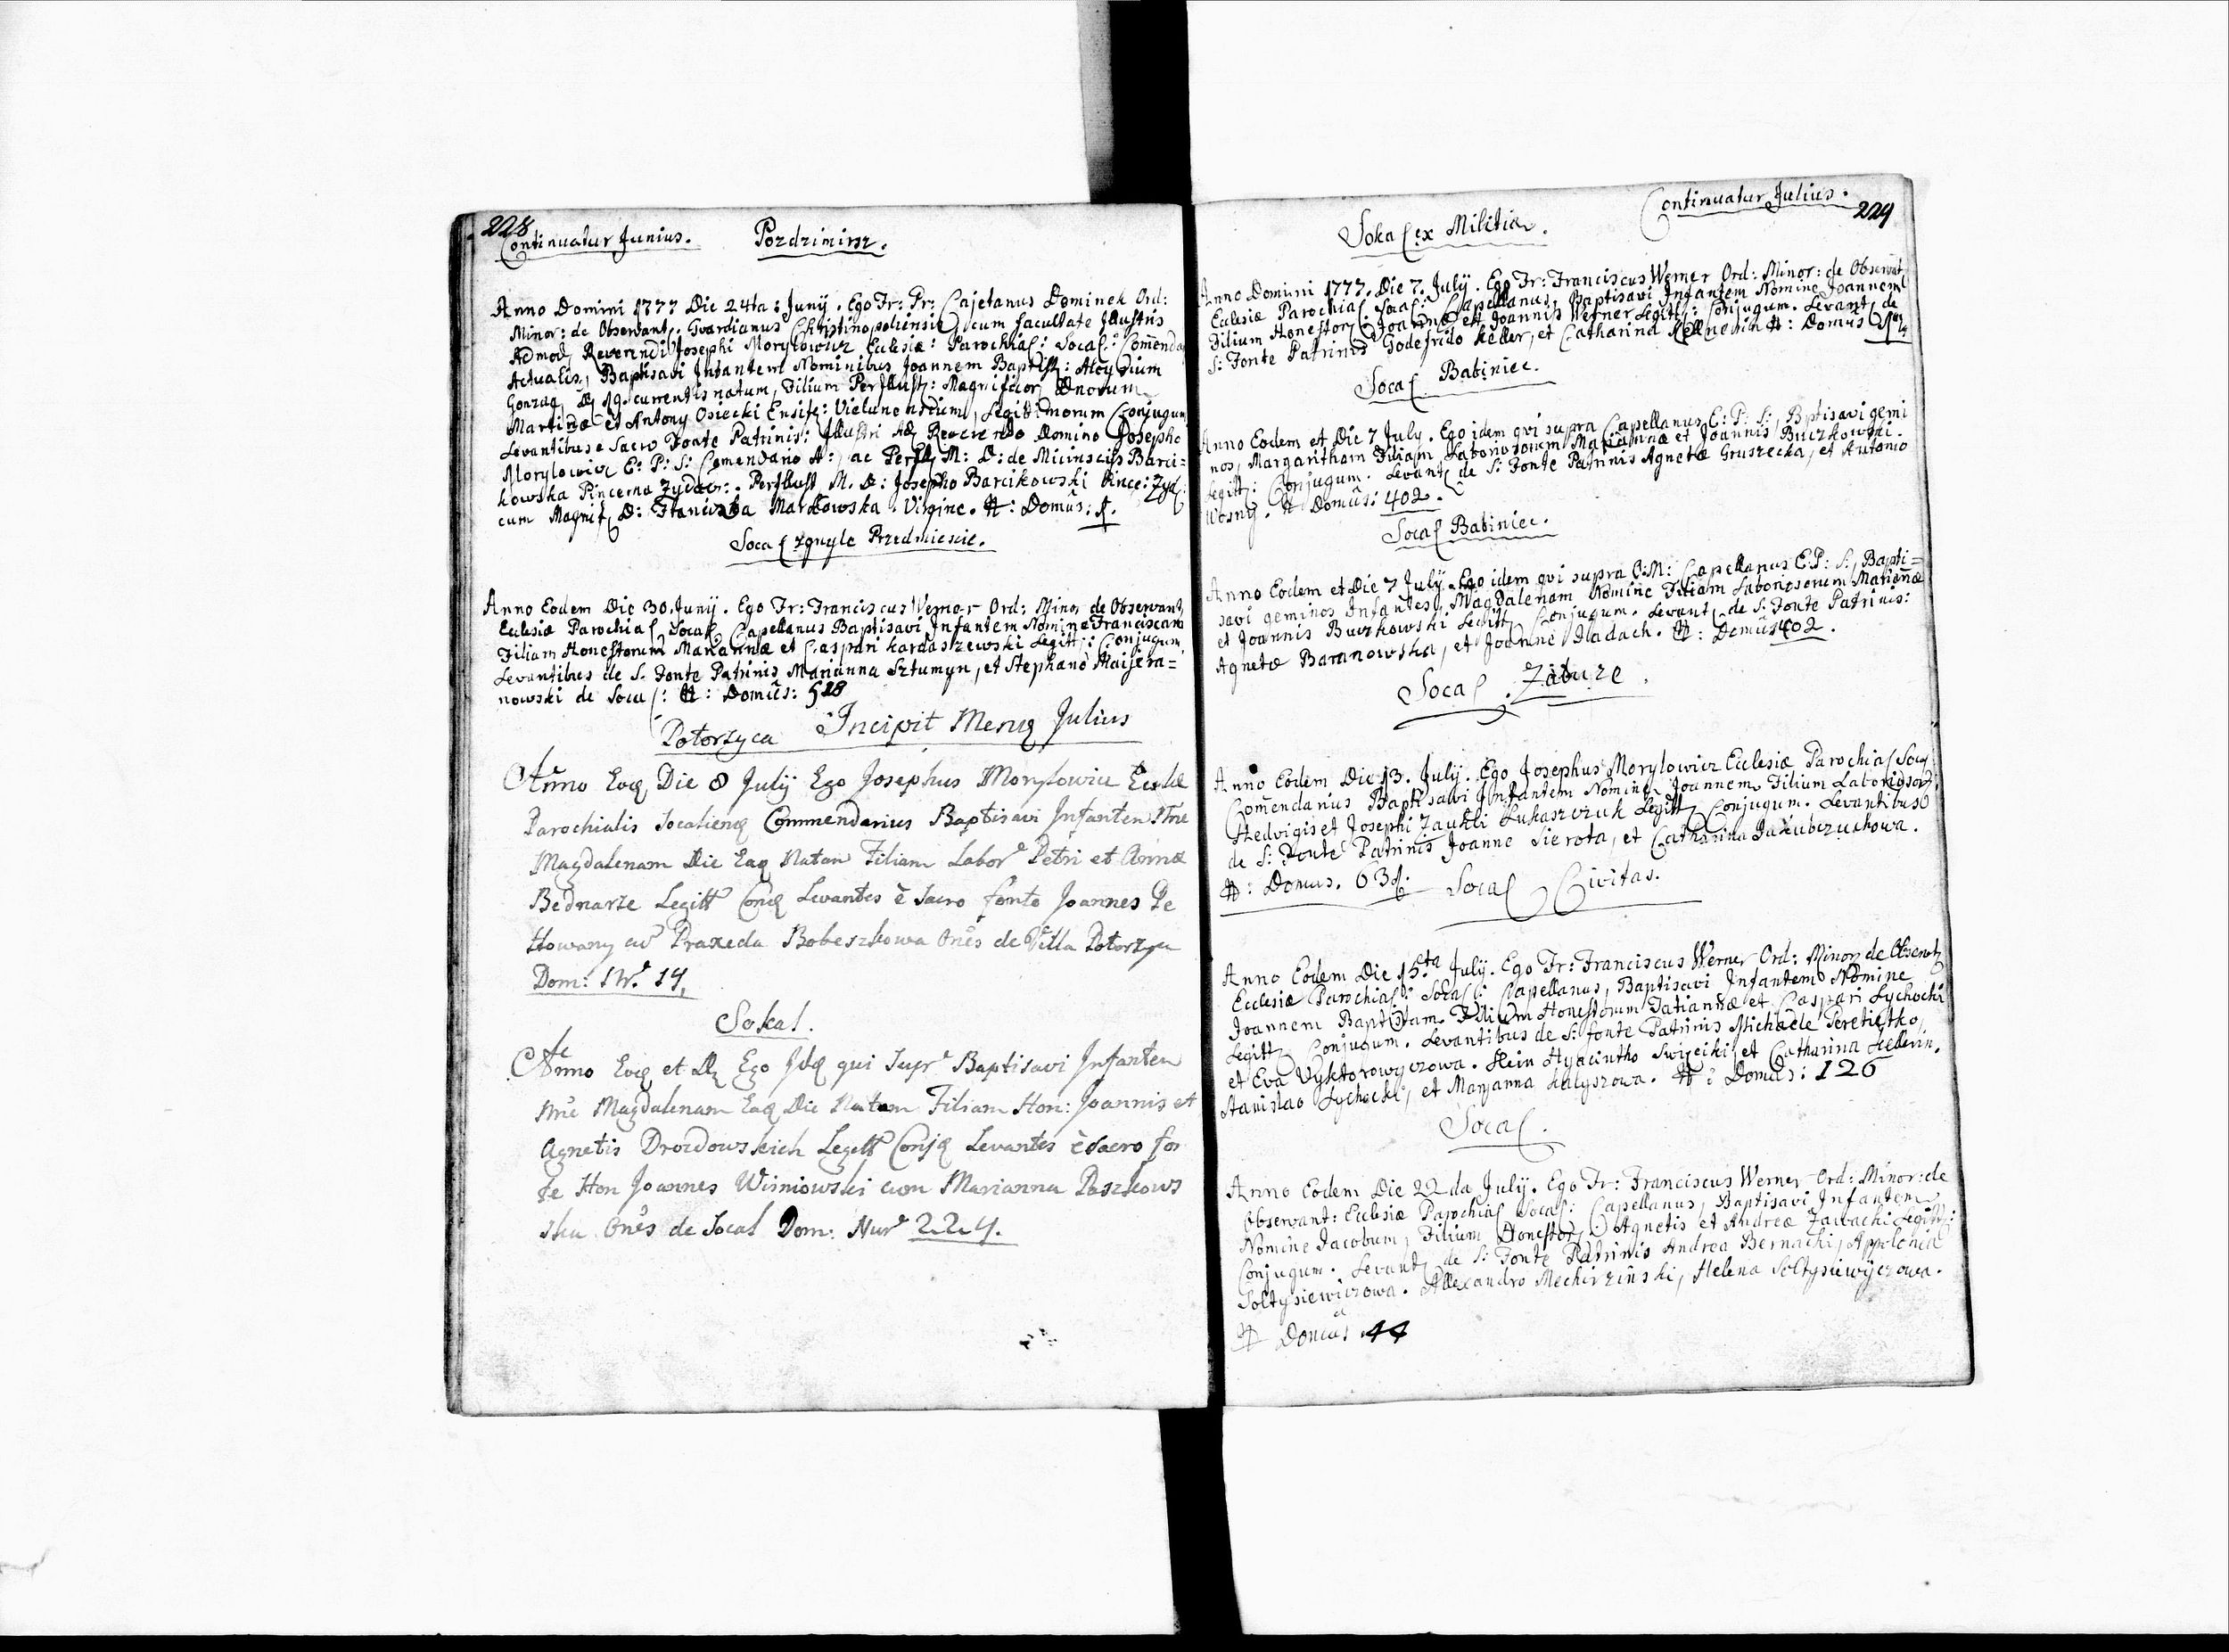 228
Continuatur Junius. Pozdzimirz.
Anno Domini 1777 Die 24ta: Junÿ. Ego Fr: Pr: Cajetanus Dominek Ord:
Minor: de Observant, Guardianus Christinopoliensis, cum facultate Illustris
Admod Reverendi Josephi Morylowicz Eclesiæ: Parochial: Socal: Comenda
Actualis, Baptisavi Infantem Nominibus Joannem Baptist: Aloysium
Gonzag, 19. currentis natum, Filium Perillust: Magnificor Dnorum
Martinæ et Antony Osiecki Ensif: Vielunensium, Legittimorum Conjugum
Levantibus e Sacro Fonte Patrinis: Illustri Ad Reverendo Domino Josepho
Morylowicz E: P: S: Comendario A: ac Perill M: D: de Micinsciis Barci=
kowska Pincerna Zydacz:. Perillust M. D: Josepho Barcikowski Pince: Zyd:
cum Magnif D: Marcowska Virgine. N: Domûs: 1.
Socal zgnyle Przedmiescie.
Anno Eodem Die 30. Junÿ. Ego Fr: Franciscus Werner Ord: Minor de Observant,
Eclesiæ Parochial Socal, Capellanus Baptisavi Infantem Nomine Franciscam
Filiam Honestorum Mariannæ et Caspari Kardaszewski Legitt: Conjugum
Levantibus de S. Fonte Patrinis Marianna Sztumyn, et Stephano Maijera=
nowski de Socal: N: Domûs: 518
Potorzyca Incipit Mens Julius
Anno Eod Die 8 July Ego Josephus Morylowicz Eccle
Parochialis Socaliens Commendarius Baptisavi Infantem Nne
Magdalenam Die Ead Natam Filiam Labor Petri et Annæ
Bednarze Legitt Conj Levantes è Sacro fonte Joannes Pe
Howany cum Praxeda Bobeszkowa Onês de Villa Potorzyca
Dom: Nr. 14,
Sokal.
Anno Eod et Die Ego Id qui Supr Baptisavi Infantem
Nne Magdalenam Ead Die Natam Filiam Hon: Joannis et
Agnetis Drozdowskich Legitt Conj Levantes è Sacro fon
te Hon Joannes Wisniowski cum Marianna Paszkows
ska Onês de Socal Dom: Nur 224.
Continuatur Julius.
229
Sokal ex Militia.
Anno Domini 1777. Die 7. Julÿ. Ego Fr: Franciscus Werner Ord: Minor: de Observat
Eclesiæ Parochial. Socal: Capellanus, Baptisavi Infantem Nomine Joannem
Filium Honestor Joannæ et Joannis Werner Legitt: Conjugum. Levant de
S: Fonte Patrinis Godefrido Keller, et Catharina N: Domûs
Socal Babiniec.
Anno Eodem et Die 7 July. Ego idem qvi supra Capellanus E: P: S:, Bptisavi gemi
nos, Margaritham Filiam Laboriosorum Mariannæ et Joannis Buczkowski.
Legitt: Conjugum. Levant de S: Fonte Patrinis Agnetæ Gruszecka, et Antonio
Wosny. N Domûs: 402.
Socal Babiniec.
Anno Eodem et Die 7 July. Ego idem qvi supra O:M: Capellanus E.P: S:, Bapti=
savi geminos Infantes, Magdalenam Nomine Filiam Laboriosorum Mariañæ
et Joannis Buczkowski Legitt Conjugum. Levant de S: Fonte Patrinis:
Agnetæ Baranowska, et Joanne Hadach. N: Domûs 402.
Socal. Zabuze.
Anno Eodem Die 13. Julÿ. Ego Josephus Morylowicz Ecclesiæ Parochial Socal
Comendarius Baptisavi Infantem Nomine Joannem Filium Laboriosor,
Hedvigis et Josephi Lukaszczuk Legitt Conjugum. Levantibus
de S: Fonte Patrinis Joanne Sierota, et Catharina Jakubczuckowa.
N: Domus. 631.
Socal Civitas.
Anno Eodem Die 15ta July. Ego Fr: Franciscus Werner Ord: Minor de Observat
Ecclesiæ Parochial: Socal: Capellanus, Baptisavi Infantem Nomine
Joannem Baptistam Filium Honestorum Tatiannæ et Caspari Lychocki
Legitt Conjugum. Levantibus de S: fonte Patrinis Michaele Peretiatko,
et Eva Vyktorowyczowa. Hyacintho Swizcicki et Catharina Hellerin.
Stanislao Lychocki, et Maryanna Kalyszowa. N: Domûs: 126
Socal.
Anno Eodem Die 22da July. Ego Fr: Franciscus Werner Ord: Minor: de
Observant: Eclesiæ Parochial Socal: Capellanus, Baptisavi Infantem
Nomine Jacobum, Filium Honestor, Agnetis et Andreæ Zawacki Legitt:
Conjugum. Levant de S: Fonte Patrinis Andrea Bernacki, Appolonia
Soltysiewiczowa. Allexandro Mechirzinski, Helena Soltysiewÿczowa.
N Domûs 44